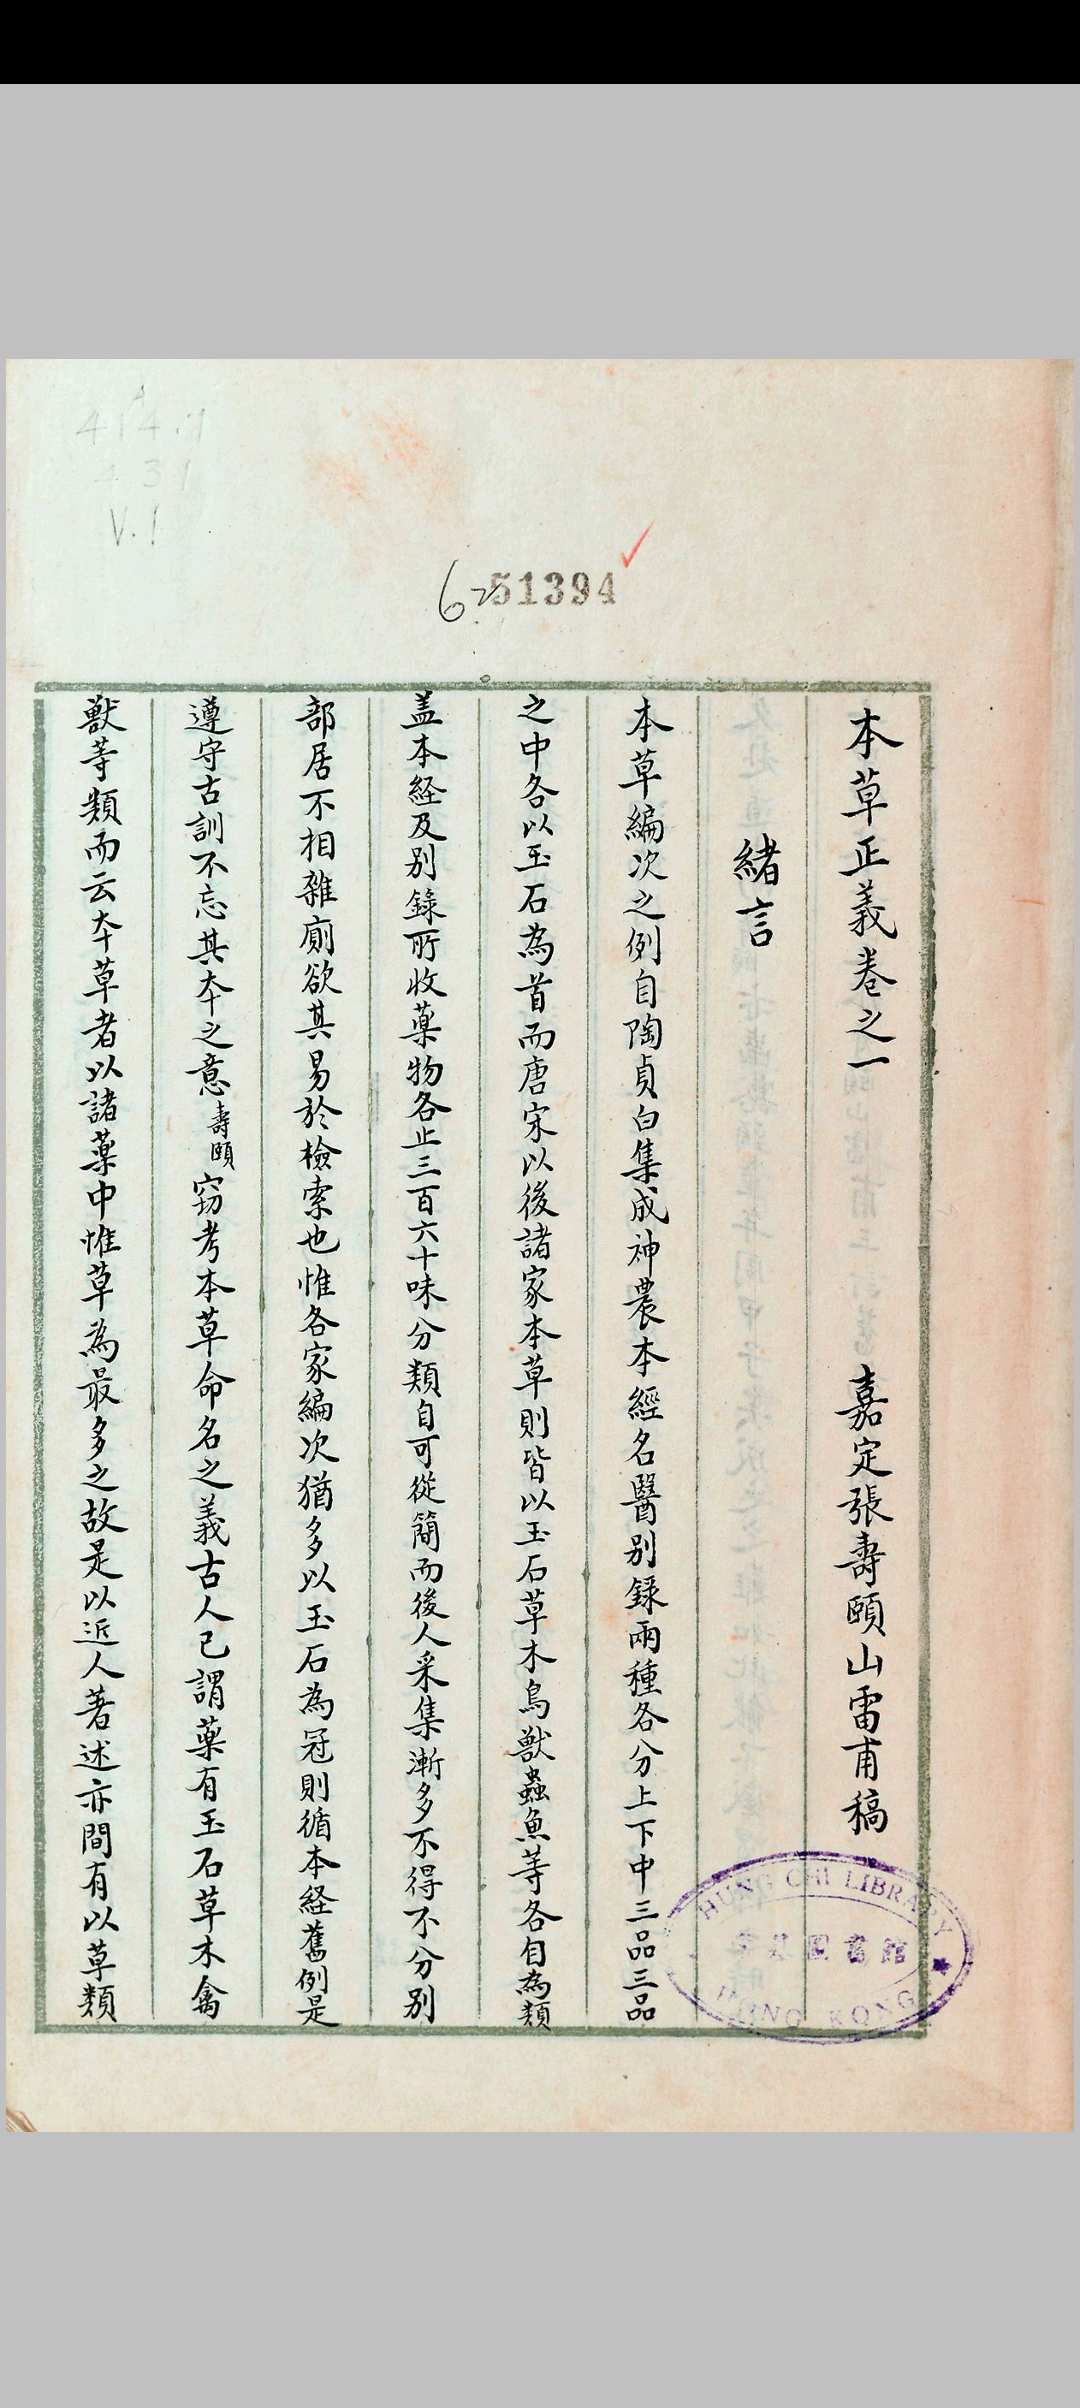 414.1
431
V.1
51394
本草正義卷之一 嘉定張壽頤山雷甫稿
緒言
本草編次之例自陶貞白集成神農本經名醫別錄兩種各分上下中三品三品
之中各以玉石為首而唐宋以後諸家本草則皆以玉石草木鳥獸蟲魚等各自為類
盖本経及別錄所收藥物各止三百六十味分類自可從簡而後人采集漸多不得不分別
部居不相雜廁欲其易於檢索也惟各家編次猶多以玉石為冠則循本経舊例是
遵守古訓不忘其本之意壽頤窃考本草命名之義古人已謂藥有玉石草木禽
獸等類而云本草者以諸藥中惟草為最多之故是以近人著述亦間有以草類
HUNG CHI LIBRARY
圖書館
HONG KONG